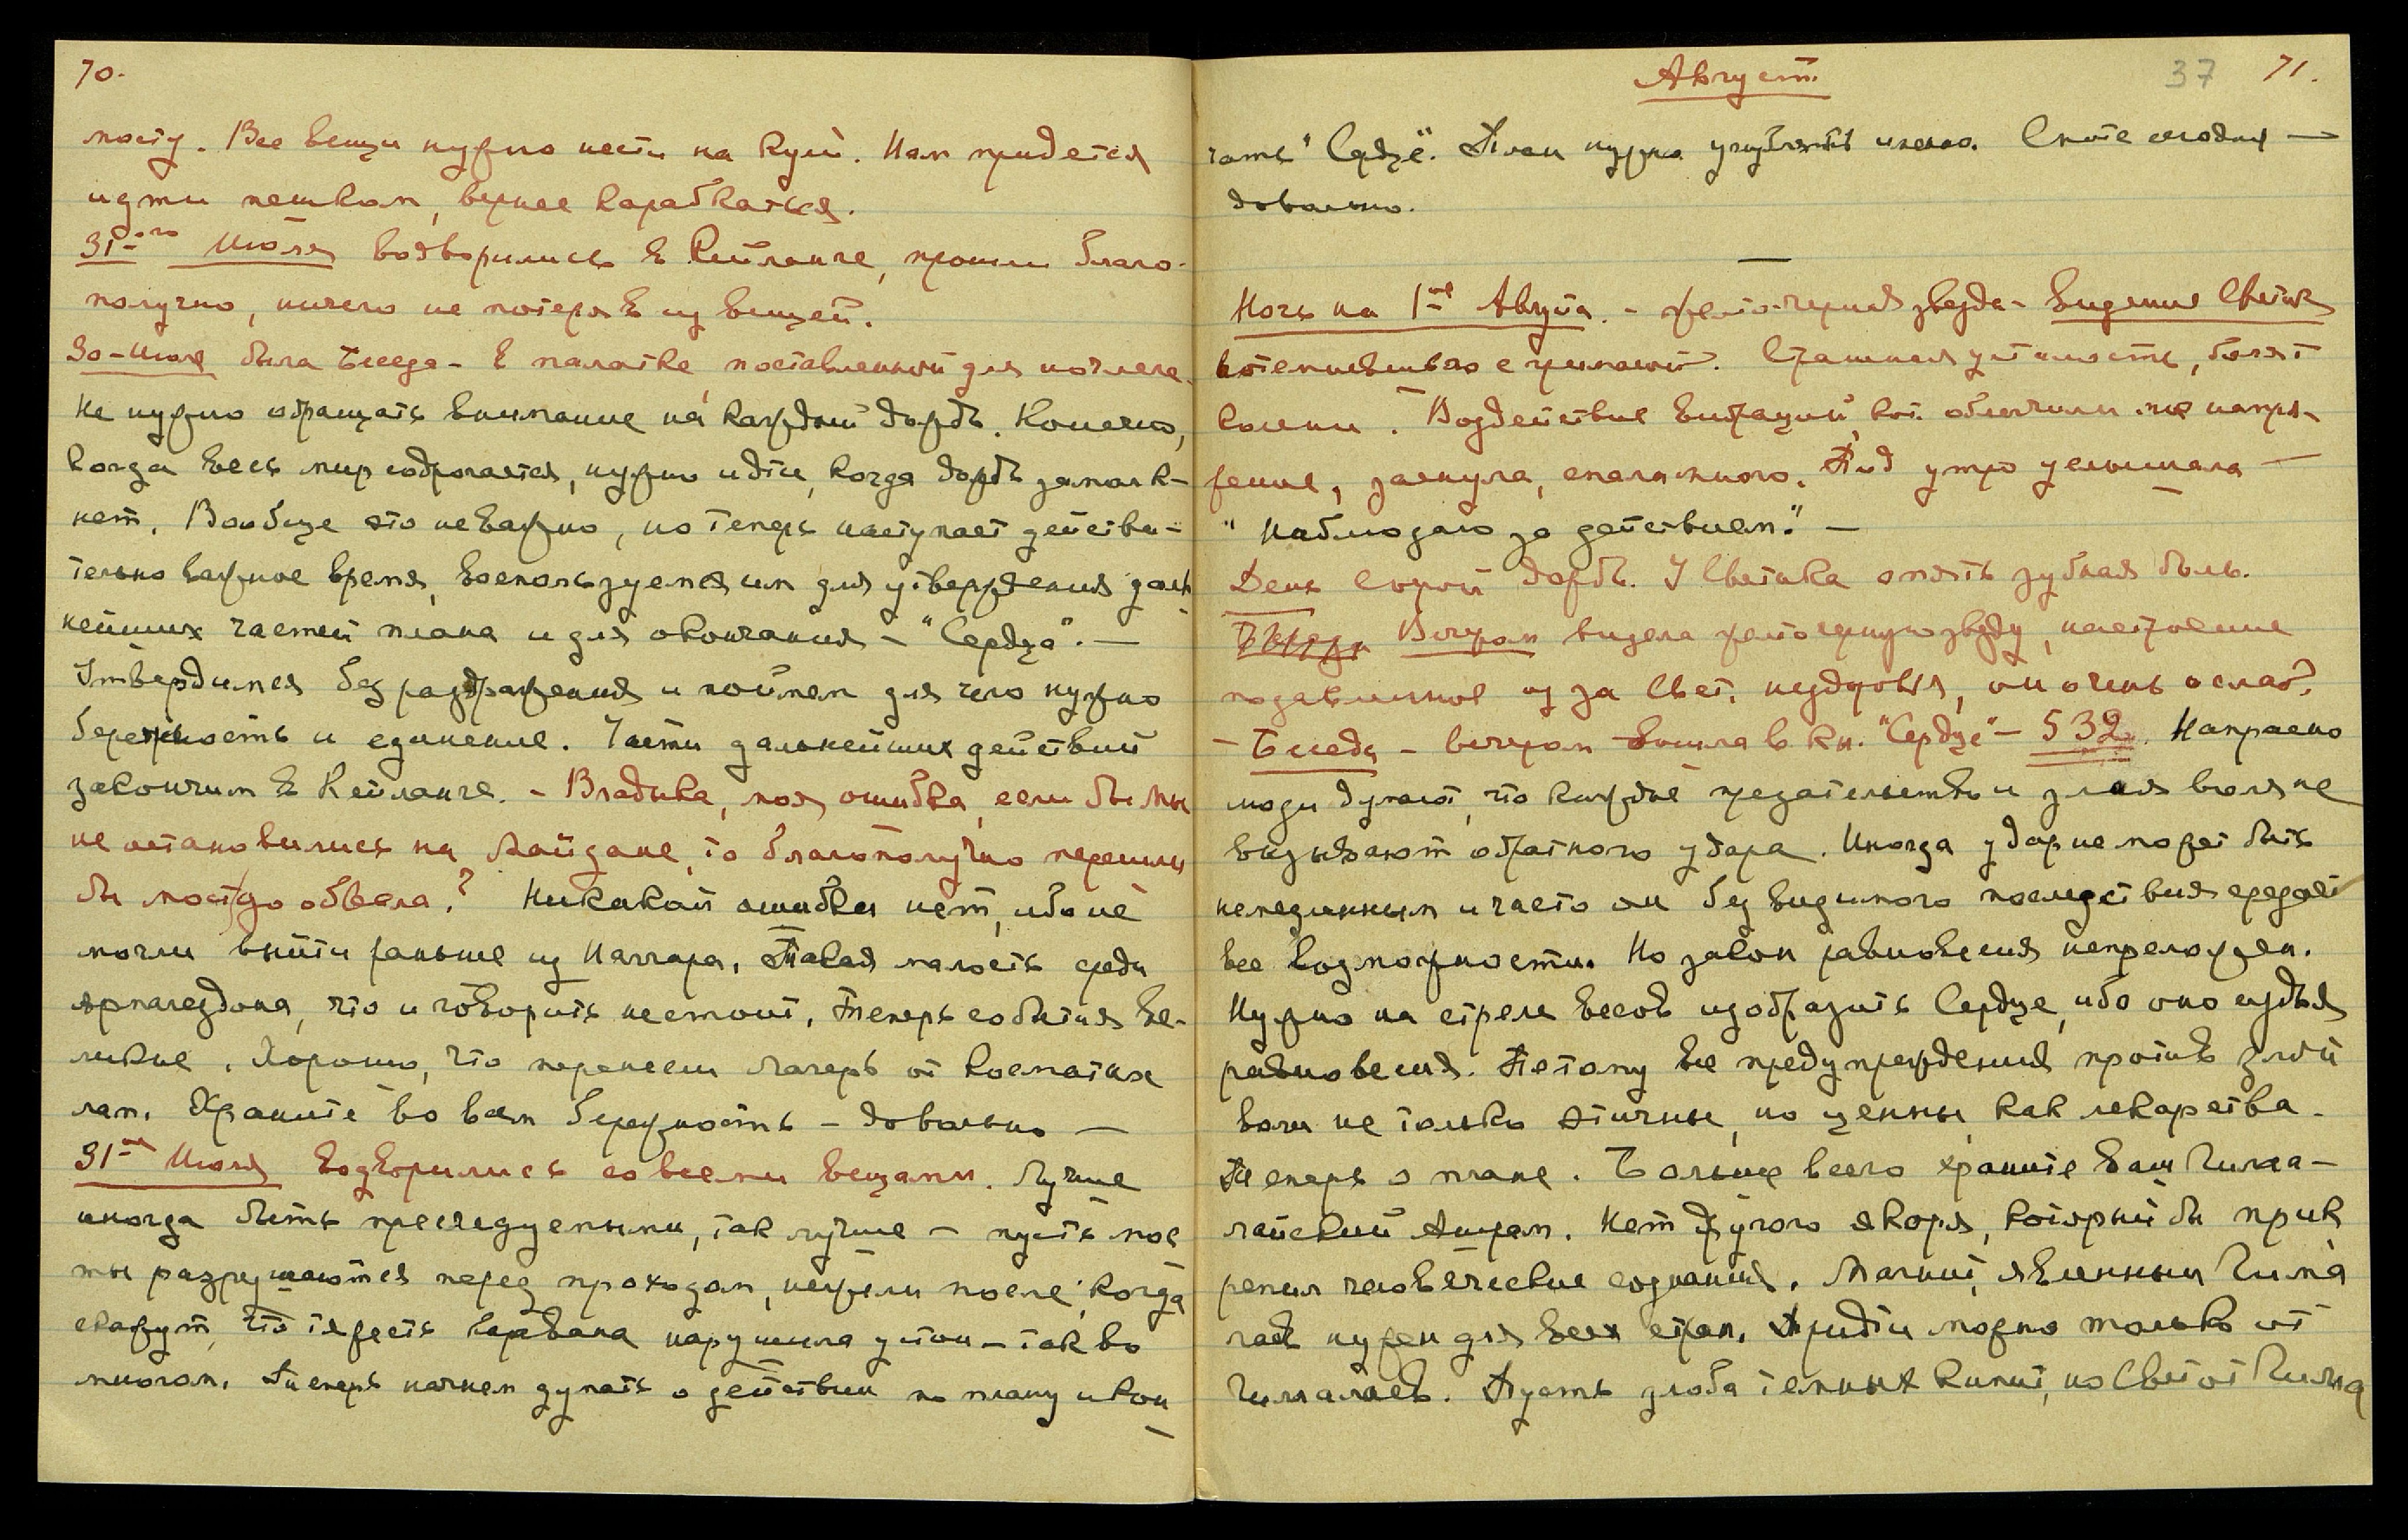 70.
мосту. Все вещи нужно нести на Кули. Нам придется
идти пешком, вернее карабкаться.
31-го Июля водворились в Кейланге, прошли благо-
получно, ничего не потеряв из вещей.
30-Июля была Беседа - в палатке, поставленной для ночлега.
Не нужно обращать внимание на каждый дождь. Конечно,
когда весь мир содрогается, нужно идти, когда дождь замолк-
нет. Вообще это неважно, но теперь наступает действи-
тельно важное время, воспользуемся им для утверждения даль
нейших частей плана и для окончания - "Сердца". —
Утвердимся без раздражения и поймем для чего нужно
бережность и единение. Части дальнейших действий
закончим в Кейланге. - Владыка, моя ошибка, если бы мы
не остановились на Майдане, то благополучно перешли
бы мост до обвала? Никакой ошибки нет, ибо не
могли выйти раньше из Наггара. Такая малость среди
Армагеддона, что и говорить не стоит. Теперь события ве-
ликие. Хорошо, что перенесли лагерь от косматых
лам. Храните во всем бережность - довольно —
31-го Июля водворились со всеми вещами. Лучше
иногда быть преследуемыми, так лучше - пусть мос
ты разрушаются перед проходом, нежели после, когда
скажут, что тяжесть каравана нарушила устои - так во
многом. Теперь начнем думать о действии по плану и кон
Август
37
71.
чать "Сердце". План нужно углублять иначе. Спите сегодня —
довольно.
Ночь на 1-ое Августа. - желто-черная звезда - видение Светика
с усталость, болят
колени. Воздействие вибраций, кот. облегчили мне напря-
жение, заснула, спала много. Под утро услышала —
"Наблюдаю за действием." —
День Сырой дождь. У Светика опять зубная боль.
Вечером видела желто-черную звезду, настроение
подавленное из за Свет. нездоровья, он очень ослаб.
- Беседа - вечером - вошла в кн. "Сердце" - 532. Напрасно
люди думают, что каждые предательство и злая воля не
вызывают обратного удара. Иногда удар не может быть
немедленным и часто он без видимого последствия среди
все возможности. Но закон равновесия непреложен.
Нужно на стреле весов изобразить Сердце, ибо оно судья
равновесия. Потому все предупреждения против злой
воли не только этичны, но ценны, как лекарства.
Теперь о плане. Больше всего храните Ваш Гима-
лайский Ашрам. Нет другого якоря, который бы прик
репил человеческие сознания. Магнит, явленный Гима
лаев нужен для всех стран. Придти можно только от
Гималаев. Пусть злоба темных кипит, но Свет от Гима